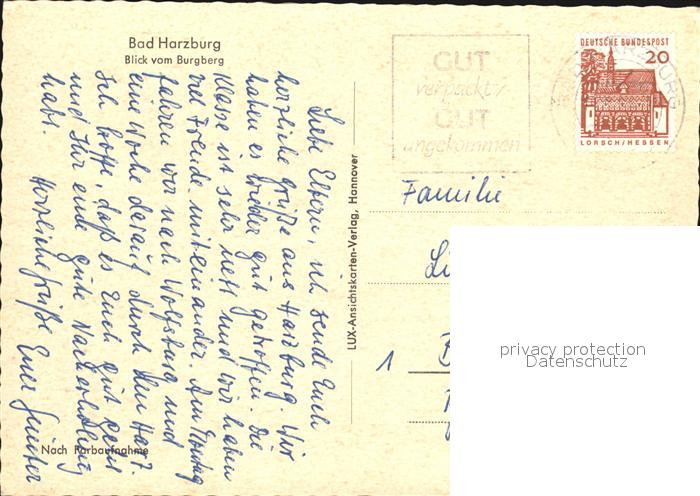 Bad Harzburg
Blick vom Burgberg
Liebe Eltern, ich sende Euch
herzliche Grüße aus Harzburg. Wir
haben es wieder gut getroffen. Die
Klasse ist sehr nett und wir haben
viel Freude miteinander. Am
fahren wir nach Wolfsburg und
eine Woche darauf durch den Harz.
Ich hoffe, daß es Euch gut geht
und Ihr eine gute Nacherholung
habt.
Herzliche Grüße Euer Günter
Nach Farbaufnahme
LUX-Ansichtskarten-Verlag, Hannover
GUT
verpackt
GUT
angekommen
DEUTSCHE BUNDESPOST
20
LORSCH/HESSEN
HARZBURG
Familie
1
privacy protection
Datenschutz